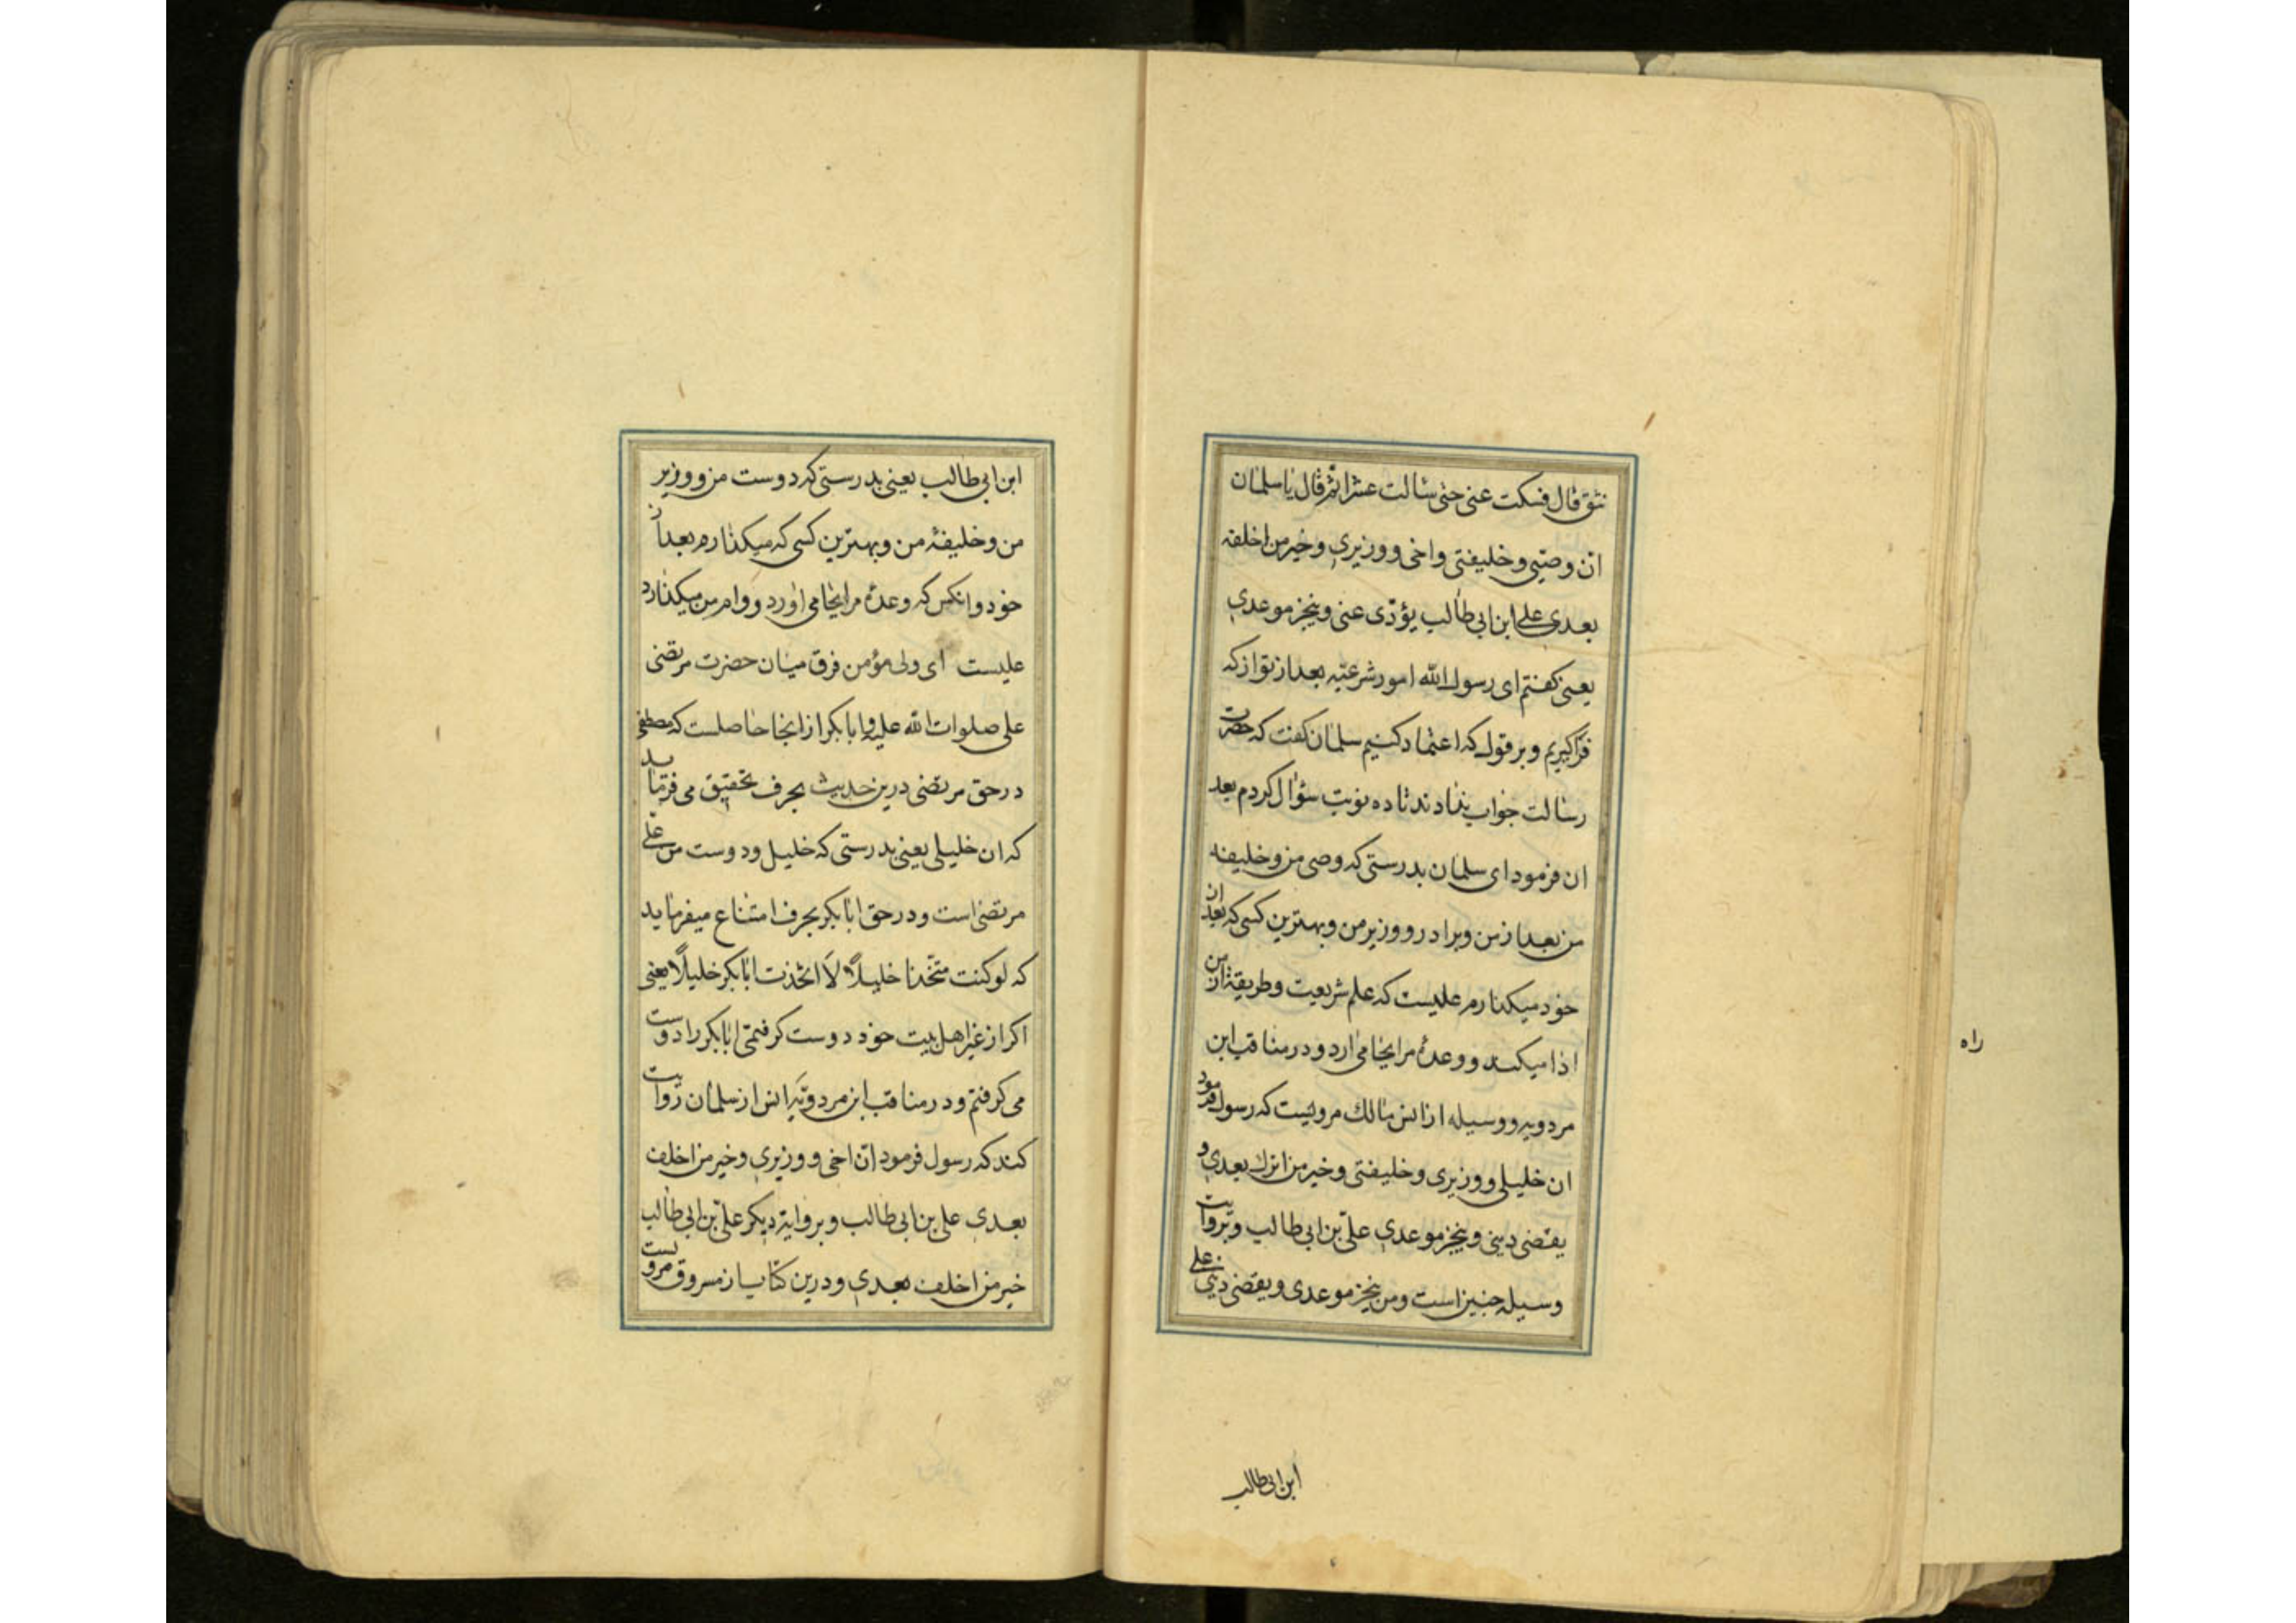 نثق قال فسكت عنی حتی سالت عشرا ثم قال یا سلمان
ان وصیی وخلیفتی واخی ووزیری وخیر من اخلفه
بعدی علی ابن ابی طالب یؤدی عنی وینجز موعدی
یعنی کفتم ای رسول الله امور شرعیه بعد از تو از که
فراکیریم و بر قول که اعتماد کنیم سلمان کفت که حضرت
رسالت جواب ندادند تا ده نوبت سؤال کردم بعد
ان فرمود ای سلمان بدرستی که وصی من وخلیفه
من بعد از من وبرادر و وزیر من وبهترین کسی که بعد ان
خود میکذارم علیست که علم شریعت وطریقه از من
ادا میکند و وعدهٔ مرا بجا می ارد و در مناقب ابن
مردویه و وسیله از انس مالك مرویست که رسول فرمود
ان خلیلی ووزیری وخلیفتی وخیر من اترك بعدی و
یقضی دینی وینجز موعدی علی بن ابی طالب وبروایت
وسیله چنین است ومن ینجز موعدی ویقضی دینی علی
ابن ابی طالب
راه
ابن ابی طالب یعنی بدرستی که دوست من و وزیر
من وخلیفهٔ من وبهترین کسی که میکذارم بعد از
خود وانکس که وعدهٔ مرا بجا می اورد و وام من میکذارد
علیست ای ولی مؤمن فرق میان حضرت مرتضی
علی صلوات الله علیه وابا بکر از اینجا حاصلست که مصطفی
در حق مرتضی درین حدیث بحرف تحقیق می فرماید
که ان خلیلی یعنی بدرستی که خلیل ودوست من علی
مرتضی است ودر حق ابا بکر بحرف امتناع میفرماید
که لو کنت متخذا خلیلاً لا اتخذت ابا بکر خلیلاً یعنی
اکر از غیر اهل بیت خود دوست کرفتمی ابا بکر را دوست
می کرفتم ودر مناقب ابن مردویه انس از سلمان روایت
کند که رسول فرمود ان اخی ووزیری وخیر من اخلف
بعدی علی بن ابی طالب وبروایة دیکر علی بن ابی طالب
خیر من اخلف بعدی ودرین کتاب از مسروق مرویست